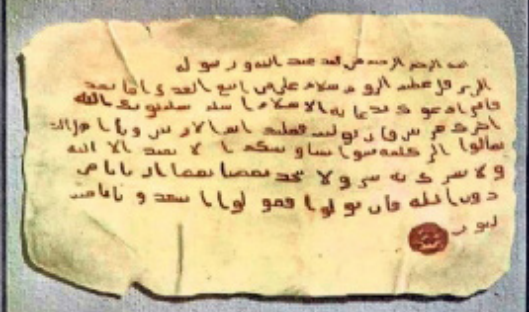 بسم الله الرحمن الرحيم من محمد عبد الله و رسوله
الى هرقل عظيم الروم سلام على من اتبع الهدى اما بعد
فانى ادعوك بدعاية الاسلام اسلم تسلم يوتك الله
اجرك مرتين فان توليت فعليك اثم الاريسين و يا اهل الكتاب
تعالوا الى كلمة سوا بيننا و بينكم الا نعبد الا الله
و لا نشرك به شيا و لا يتخذ بعضنا بعضا اربابا من
دون الله فان تولوا فقولوا اشهدوا بانا مسلمون